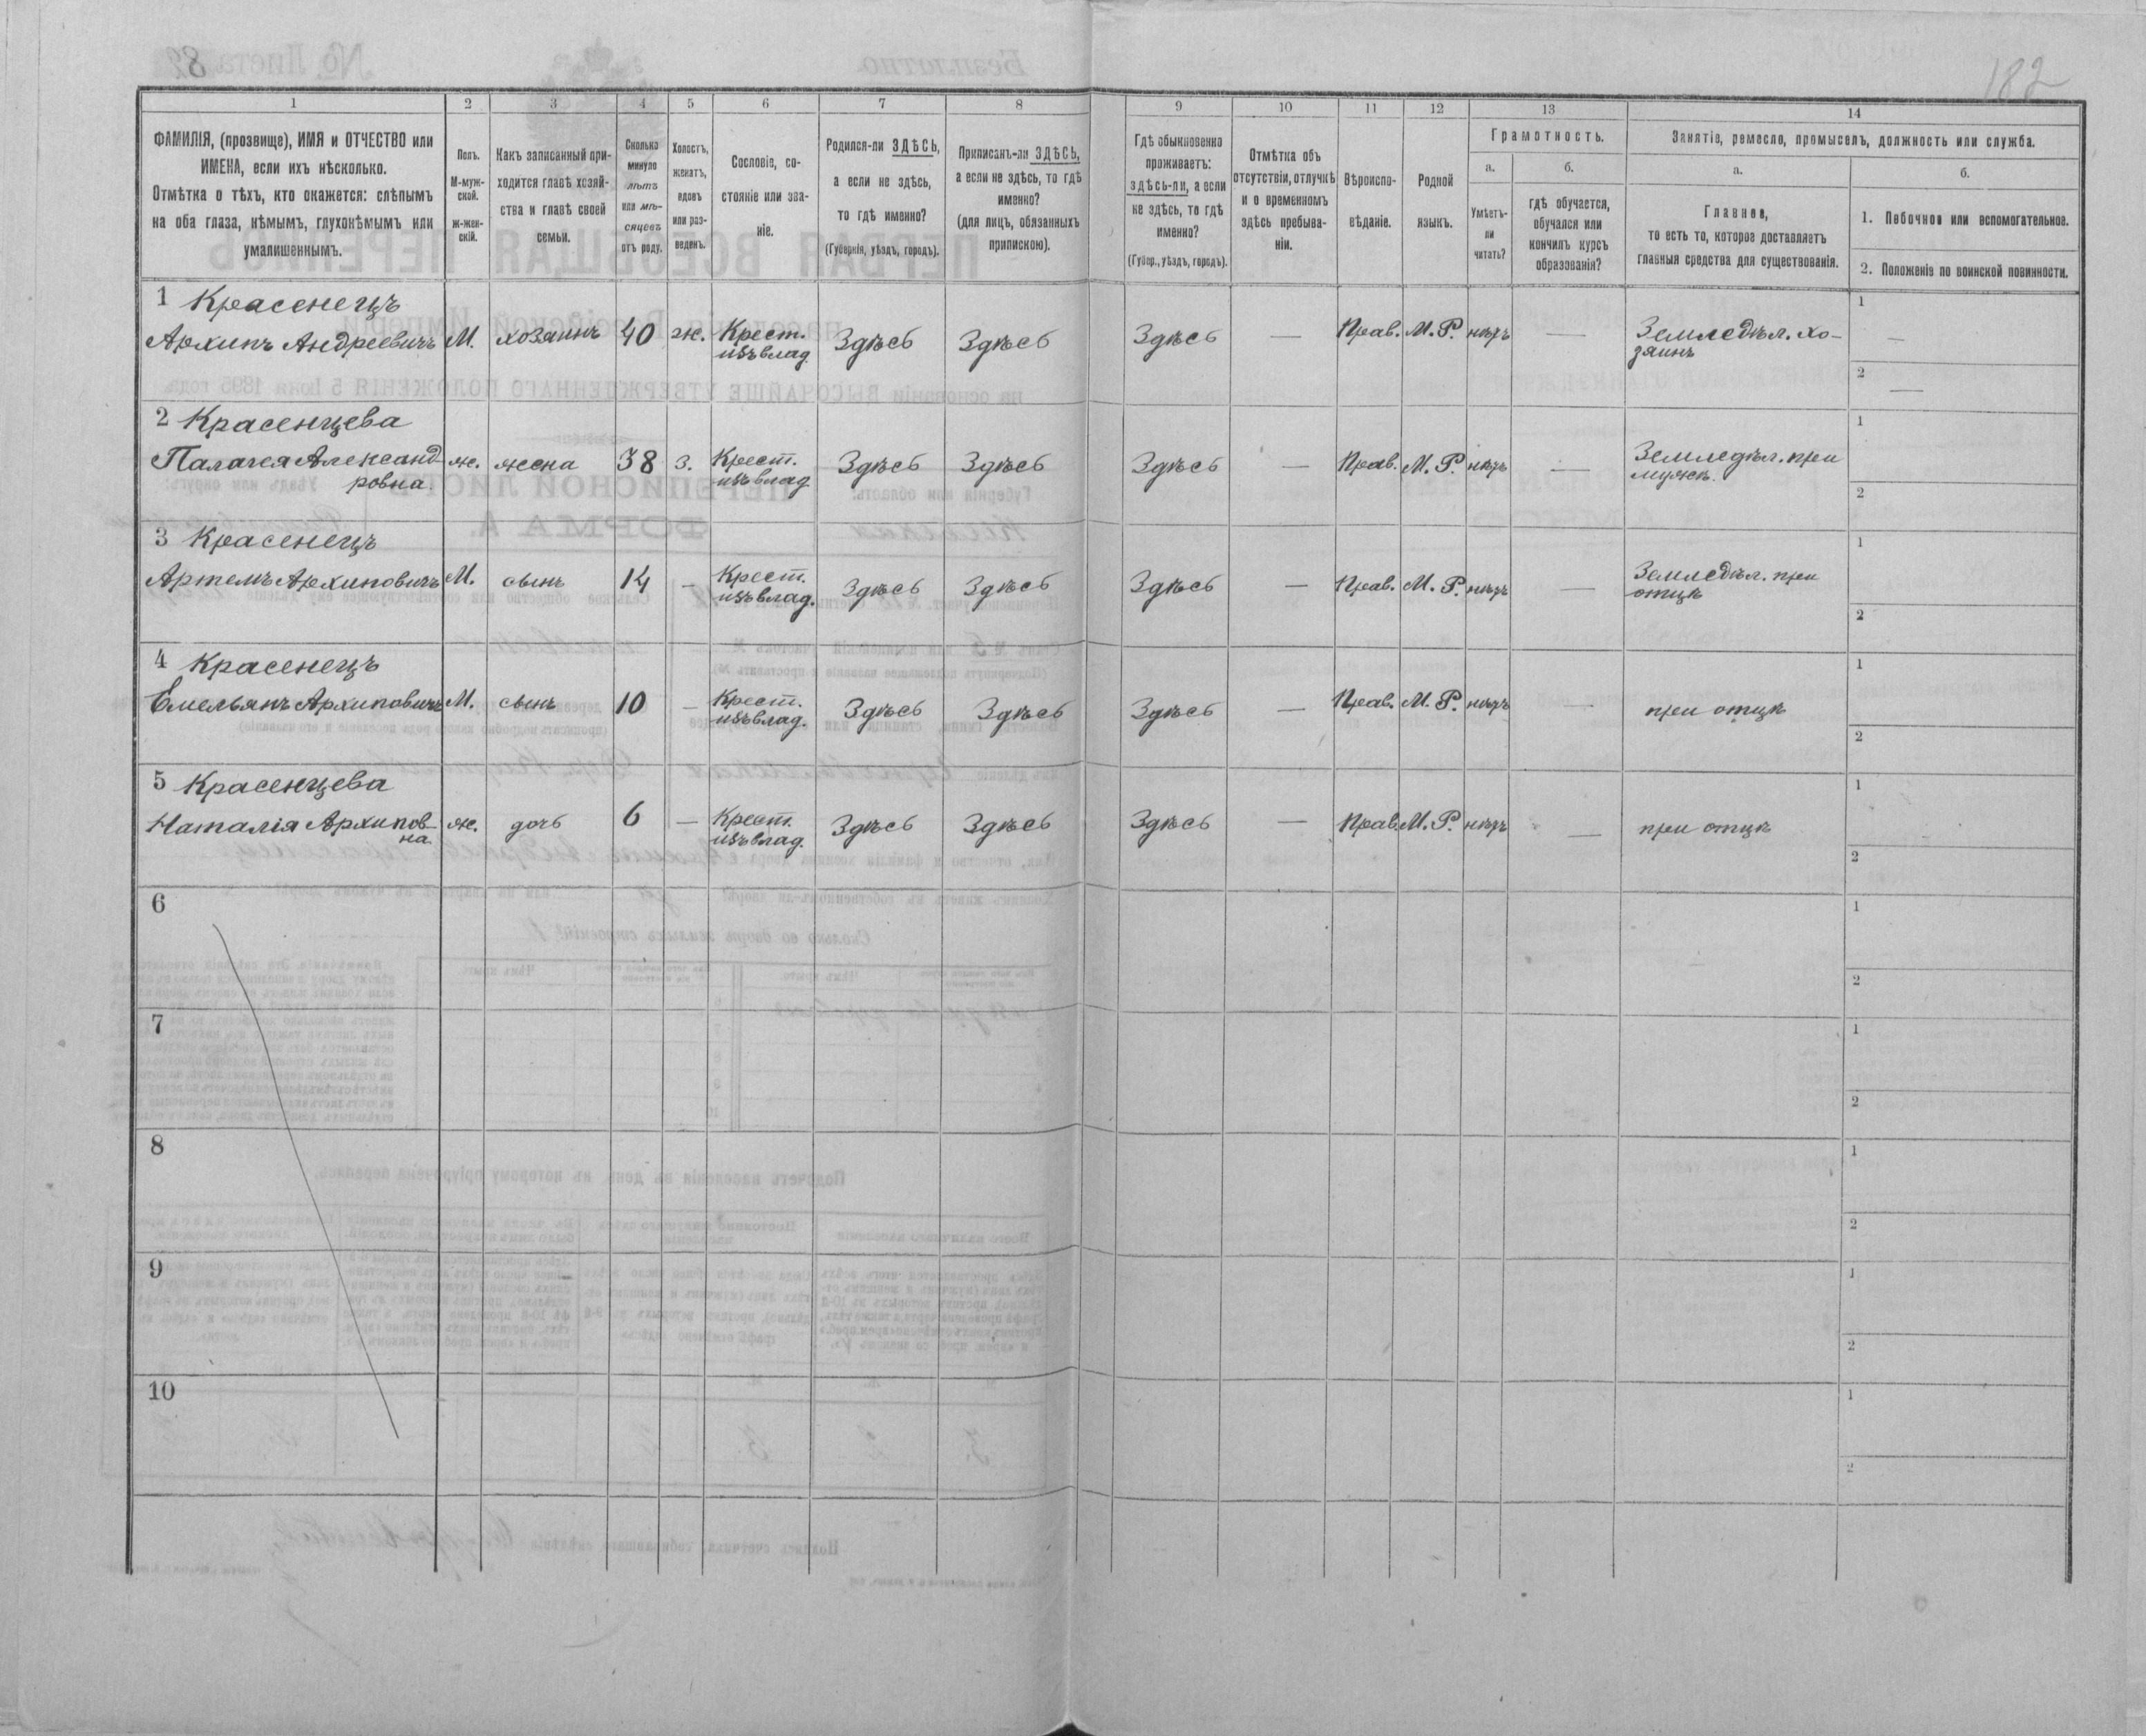 182
1
2
3
4
5
6
7
8
9
10
11
12
13
14
ФАМИЛІЯ, (прозвище), ИМЯ и ОТЧЕСТВО или
ИМЕНА, если ихъ нѣсколько.
Отмѣтка о тѣхъ, кто окажется: слѣпымъ
на оба глаза, нѣмымъ, глухонѣмымъ или
умалишеннымъ.
Полъ.
М-муж-
ской.
ж-жен-
скій.
Какъ записанный при-
ходится главѣ хозяй-
ства и главѣ своей
семьи.
Сколько
минуло
лѣтъ
или мѣ-
сяцевъ
отъ роду.
Холостъ,
женатъ,
вдовъ
или раз-
веденъ.
Сословіе, со-
стояніе или зва-
ніе.
Родился-ли ЗДѢСЬ,
а если не здѣсь,
то гдѣ именно?
(Губернія, уѣздъ, городъ).
Приписанъ-ли ЗДѢСЬ,
а если не здѣсь, то гдѣ
именно?
(для лицъ, обязанныхъ
припискою).
Гдѣ обыкновенно
проживаетъ:
здѣсь-ли, а если
не здѣсь, то гдѣ
именно?
(Губер., уѣздъ, городъ).
Отмѣтка объ
отсутствіи, отлучкѣ
и о временномъ
здѣсь пребыва-
ніи.
Вѣроиспо-
вѣданіе.
Родной
языкъ.
Грамотность.
а.
Умѣетъ-
ли
читать?
б.
гдѣ обучается,
обучался или
кончилъ курсъ
образованія?
Занятіе, ремесло, промыселъ, должность или служба.
а.
Главное,
то есть то, которое доставляетъ
главныя средства для существованія.
б.
1. Побочное или вспомогательное.
2. Положеніе по воинской повинности.
1 Красенецъ
Архипъ Андреевичъ М. хозаинъ 40 ж. Крест. Здѣсь Здѣсь Здѣсь — Прав. М. Р. нѣтъ — Земледѣл. хо-
изъ влад. зяинъ
1 —
2 —
2 Красенцева
Палагея Александ- ж. жена 38 з. Крест. Здѣсь Здѣсь Здѣсь — Прав. М. Р. нѣтъ — Земледѣл. при
ровна. изъ влад. мужѣ.
1
2
3 Красенецъ
Артемъ Архиповичъ М. сынъ 14 — Крест. Здѣсь Здѣсь Здѣсь — Прав. М. Р. нѣтъ — Земледѣл. при
изъ влад. отцѣ
1
2
4 Красенецъ
Емельянъ Архиповичъ М. сынъ 10 — Крест. Здѣсь Здѣсь Здѣсь — Прав. М. Р. нѣтъ — при отцѣ
изъ влад.
1
2
5 Красенцева
Наталія Архипов- ж. дочь 6 — Крест. Здѣсь Здѣсь Здѣсь — Прав. М. Р. нѣтъ — при отцѣ
на. изъ влад.
1
2
6
1
2
7
1
2
8
1
2
9
1
2
10
1
2